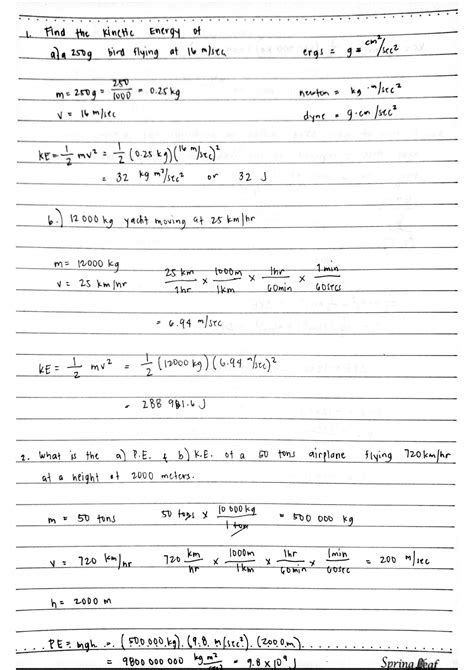 1. Find the Kinetic Energy of
a) a 250g bird flying at 16 m/sec
ergs = g = cm²/sec²
m = 250g = 250/1000 = 0.25 kg
newton = kg · m/sec²
v = 16 m/sec
dyne = g·cm/sec²
KE = 1/2 mv² = 1/2 (0.25 kg)(16 m/sec)²
= 32 kg m²/sec² or 32 J
b.) 12 000 kg yacht moving at 25 km/hr
m = 12000 kg
v = 25 km/hr
25 km/1hr × 1000m/1km × 1hr/60min × 1min/60secs
= 6.94 m/sec
KE = 1/2 mv² = 1/2 (12000 kg)(6.94 m/sec)²
= 288 981.6 J
2. What is the a) P.E. & b) K.E. of a 50 tons airplane flying 720 km/hr
at a height of 2000 meters.
m = 50 tons
50 tons × 10 000 kg/1 ton = 500 000 kg
v = 720 km/hr
720 km/hr × 1000m/1km × 1hr/60min × 1min/60sec = 200 m/sec
h = 2000 m
PE = mgh = (500 000 kg) (9.8 m/sec²) (2000m)
= 9800 000 000 kg m²/sec² = 9.8 × 10⁹ J
Spring Leaf